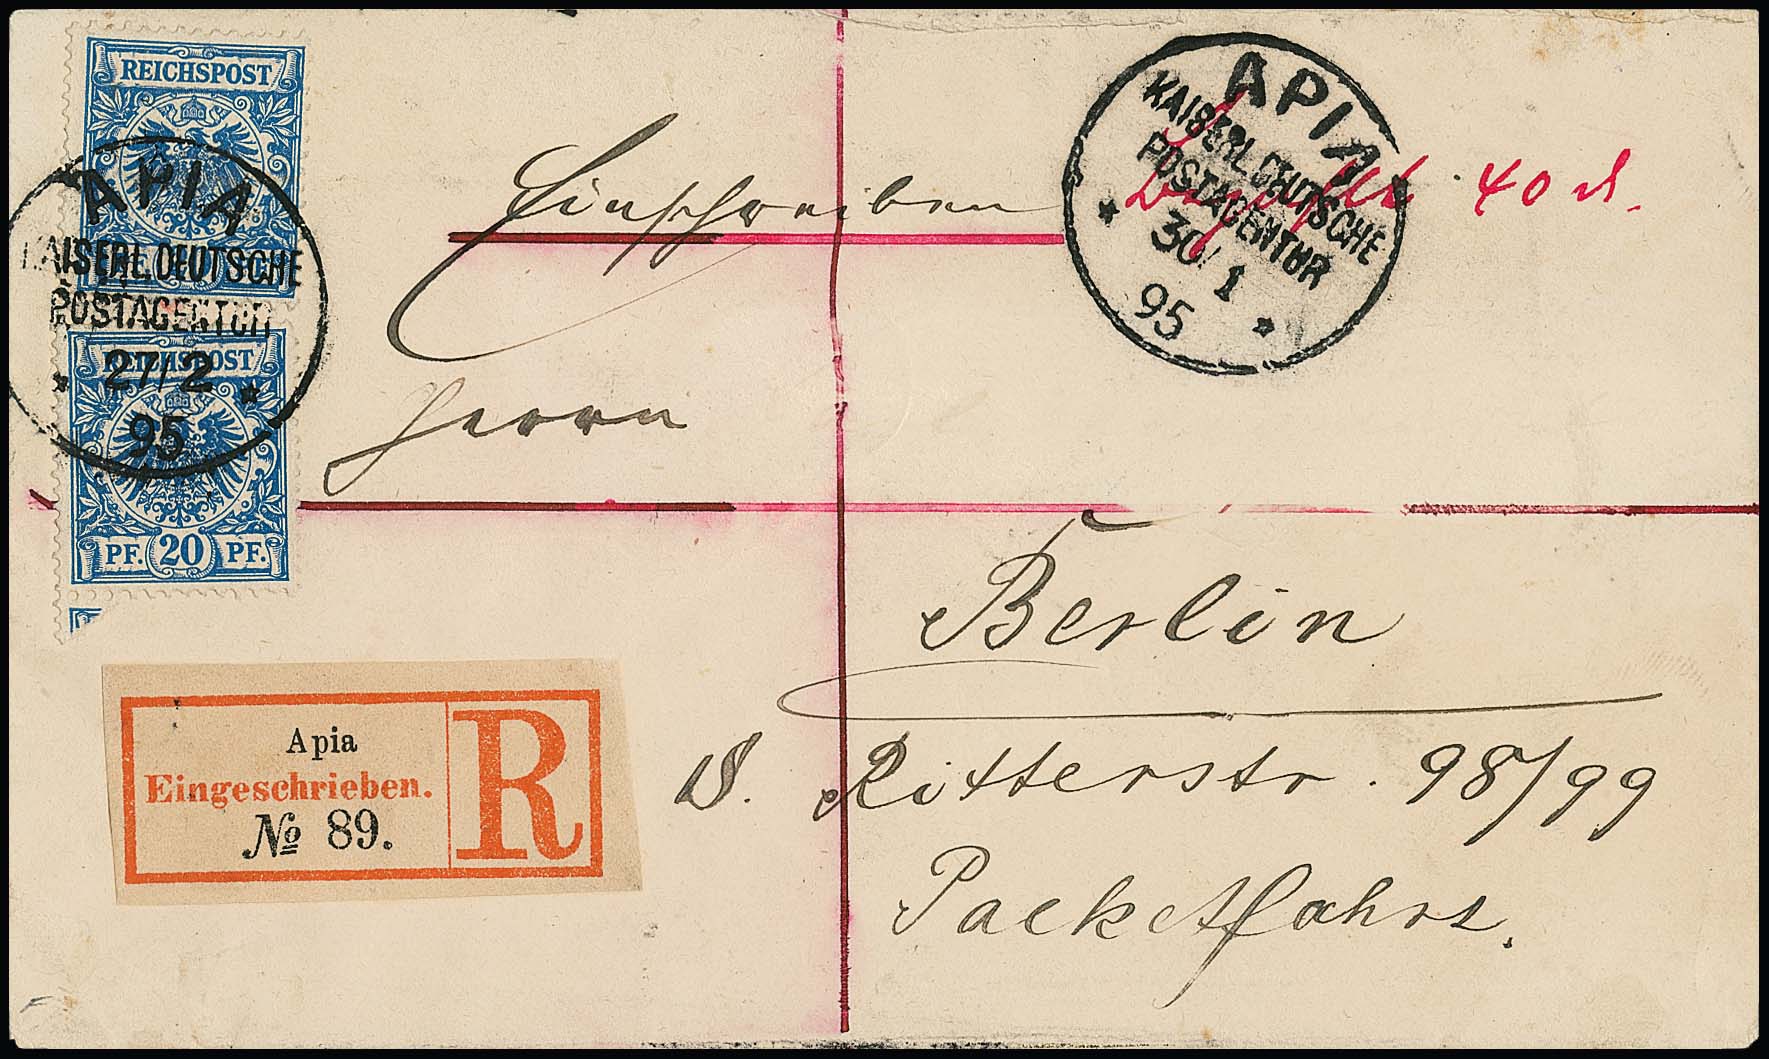 REICHSPOST
APIA
KAISERL. DEUTSCHE
POSTAGENTUR
27/2
95
REICHSPOST
PF. 20 PF.
APIA
KAISERL. DEUTSCHE
POSTAGENTUR
30/1
95
Einschreiben
40 d.
Herrn
Berlin
Ritterstr. 98/99
Packetfahrt.
Apia
Eingeschrieben.
№ 89.
R